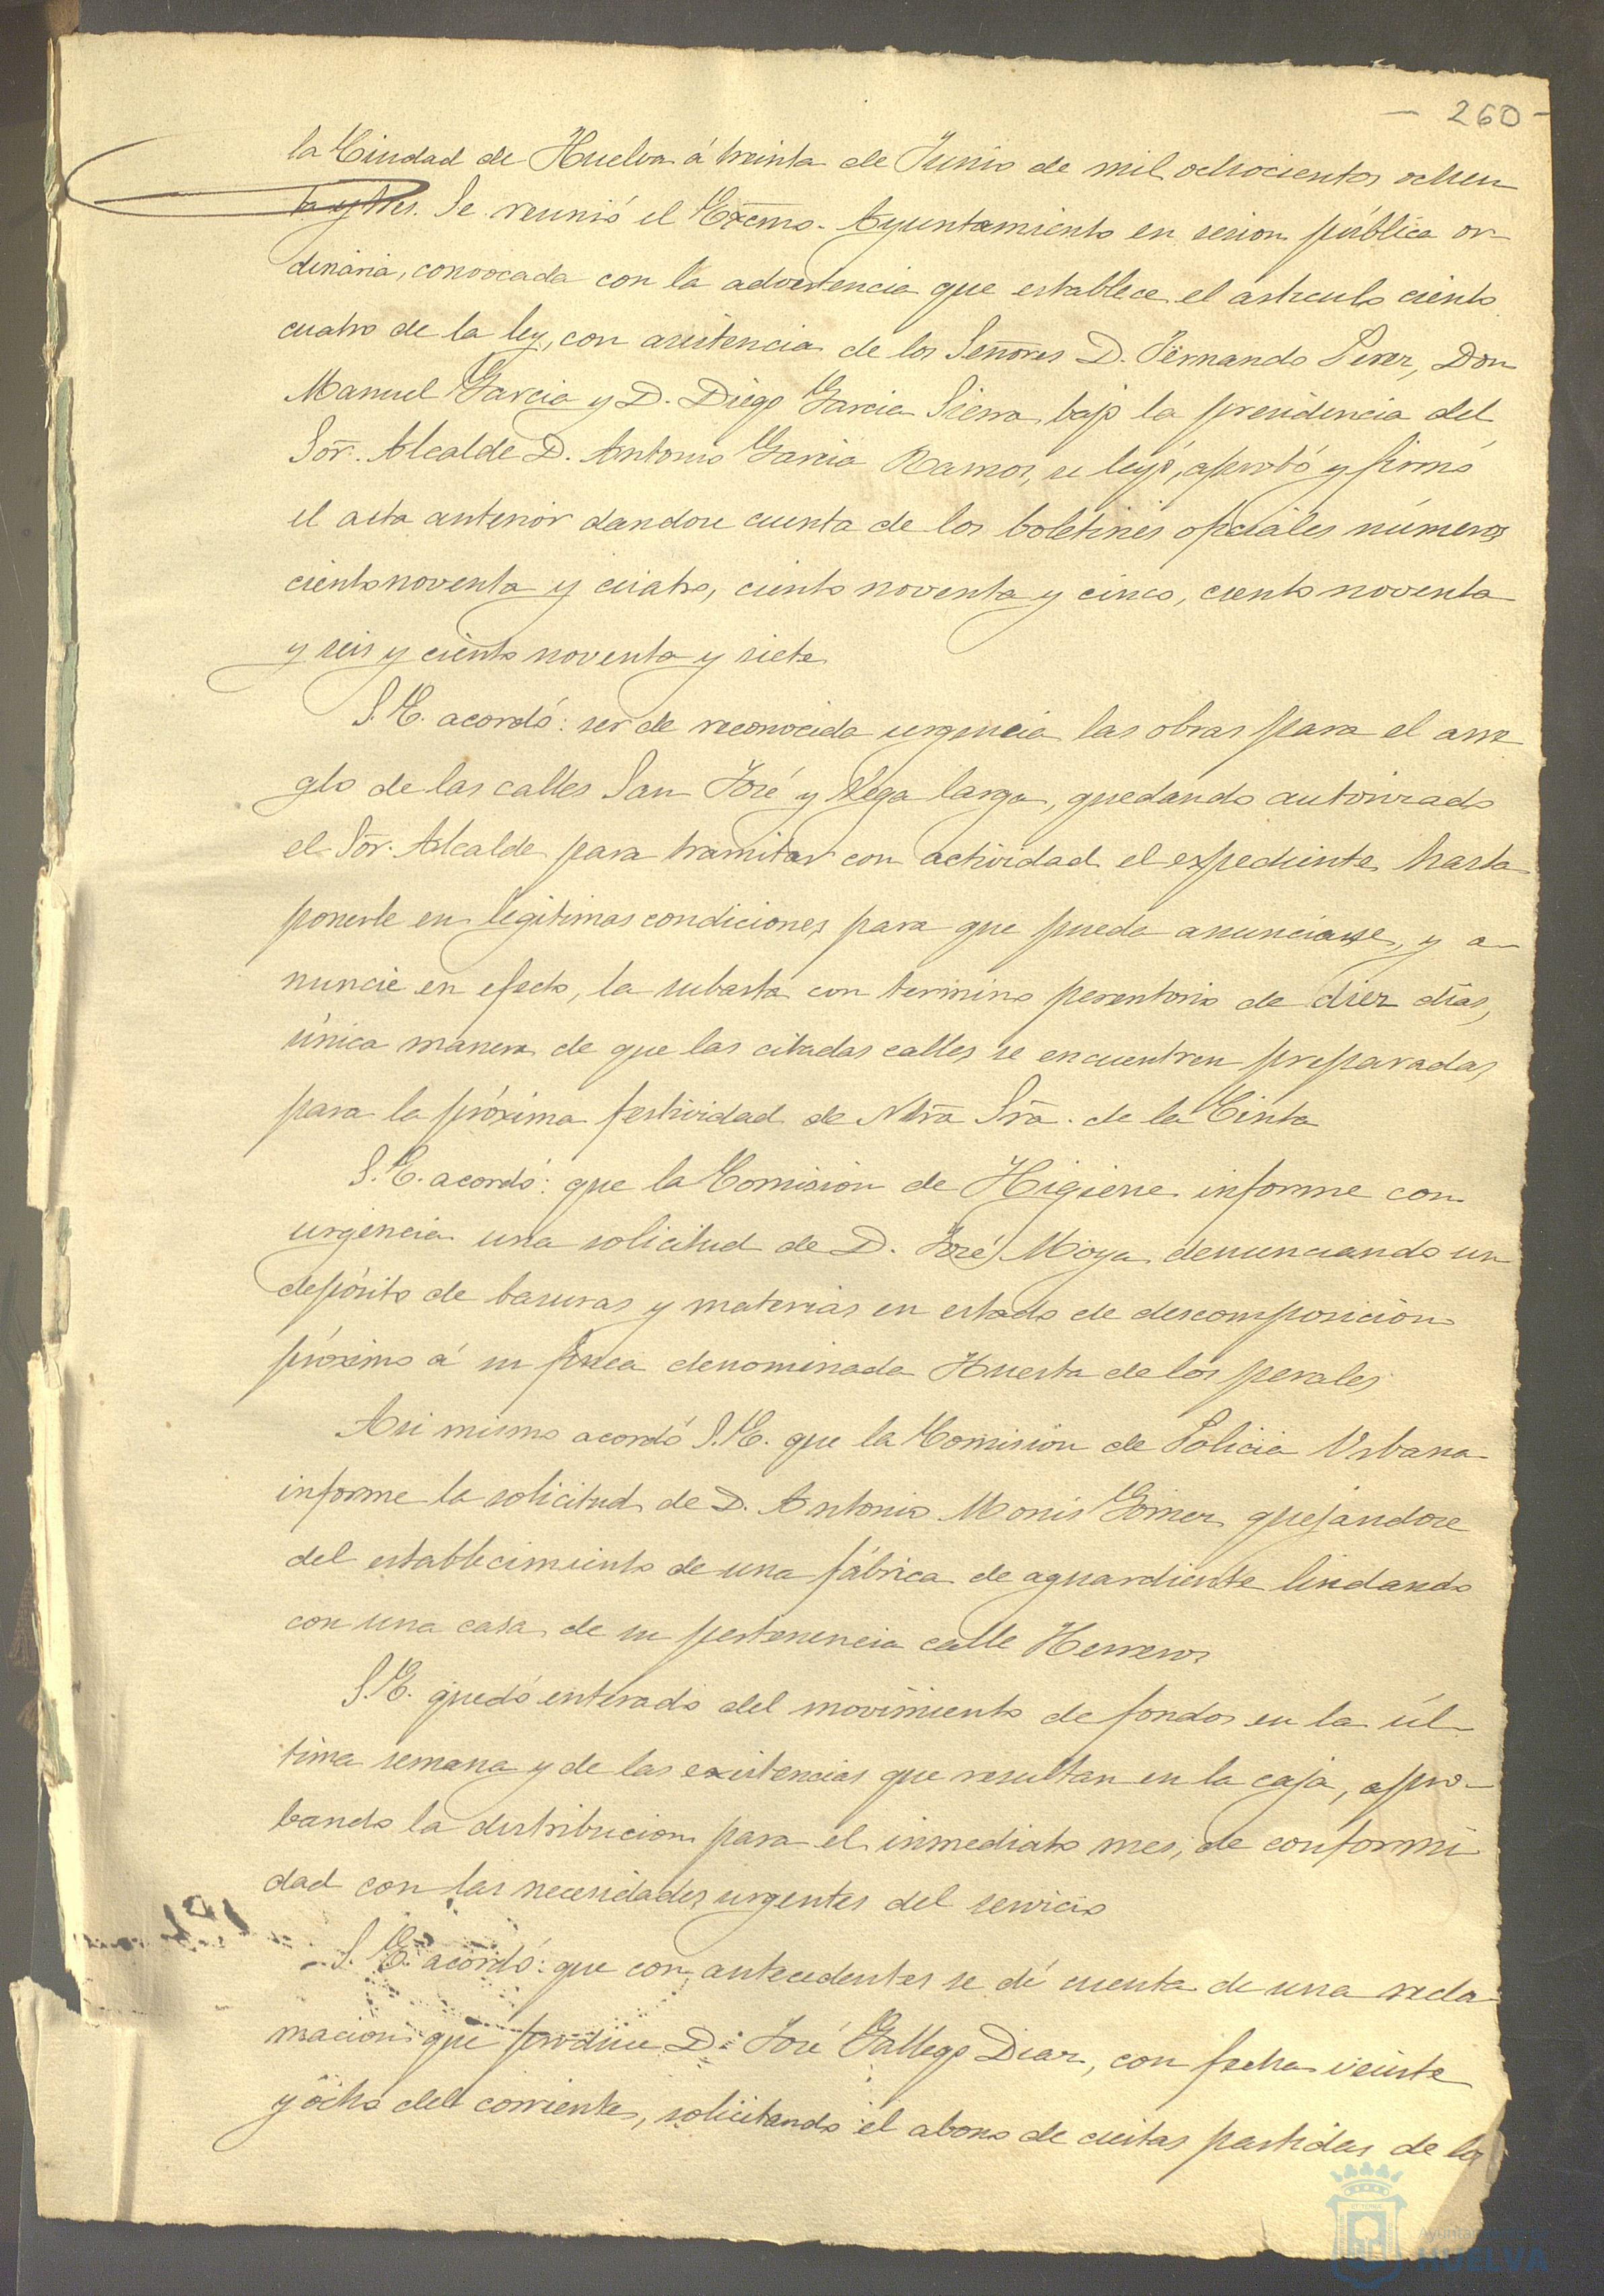 - 260 -
la Ciudad de Huelva á treinta de Junio de mil ochocientos ochen
ta y tres. Se reunió el Excmo. Ayuntamiento en sesion pública or-
dinaria, convocada con la advertencia que establece el articulo ciento
cuatro de la ley, con asistencia de los Señores D. Fernando Perez, Don
Manuel Garcia y D. Diego Garcia Sierra, bajo la presidencia del
Sor. Alcalde D. Antonio Garcia Ramos, se leyó, aprobó y firmó
el acta anterior dandose cuenta de los boletines oficiales números
ciento noventa y cuatro, ciento noventa y cinco, ciento noventa
y seis y ciento noventa y siete
S.E. acordó: ser de reconocida urgencia las obras para el arre
glo de las calles San José y Vega larga, quedando autorizado
el Sor. Alcalde para tramitar con actividad el expediente hasta
ponerle en legitimas condiciones para que pueda anunciarse, y a-
nuncie en efecto, la subasta con termino perentorio de diez dias,
única manera de que las citadas calles se encuentren preparadas
para la próxima festividad de Ntra Sra. de la Cinta
S.E. acordó: que la Comision de Higiene informe con
urgencia una solicitud de D. José Moya denunciando un
depósito de basuras y materias en estado de descomposicion
próximo á su finca denominada Huerta de los perales
Asi mismo acordó S.E. que la Comision de Policia Urbana
informe la solicitud de D. Antonio Monis Gomez quejandose
del establecimiento de una fábrica de aguardiente lindando
con una casa de su pertenencia calle Herreros
S.E. quedó enterado del movimiento de fondos en la úl-
tima semana y de las existencias que resultan en la caja, apro-
bando la distribucion para el inmediato mes, de conformi
dad con las necesidades urgentes del servicio
S.E. acordó: que con antecedentes se dé cuenta de una recla
macion que produce D. José Gallego Diaz, con fecha veinte
y ocho del corriente, solicitando el abono de ciertas partidas de la
Ayuntamiento de
HUELVA